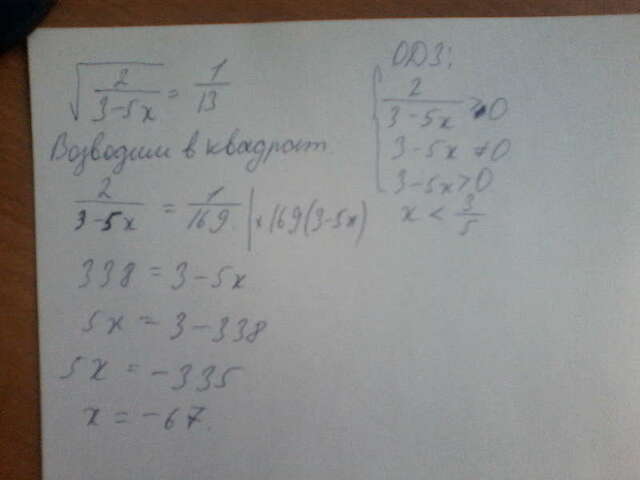 √(2/(3-5x)) = 1/13
Возводим в квадрат.
2/(3-5x) = 1/169 | × 169(3-5x)
338 = 3-5x
5x = 3-338
5x = -335
x = -67.
ОДЗ:
{ 2/(3-5x) ≥ 0
3-5x ≠ 0
3-5x > 0
x < 3/5